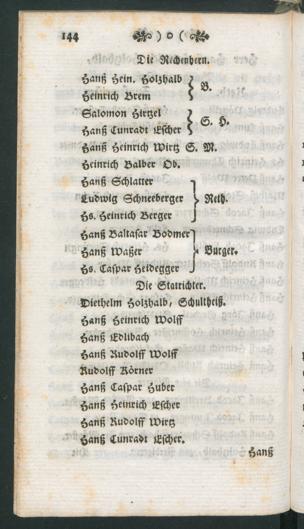 144 ) o (
Die Rechenhern.
Hanß Hein. Holzhalb
Heinrich Brem } B.
Salomon Hirtzel
Hanß Cunradt Escher } S. H.
Hanß Heinrich Wirtz S. M.
Heinrich Balber Ob.
Hanß Schlatter
Ludwig Schneeberger } Reth.
Hs. Heinrich Berger
Hanß Baltasar Bodmer
Hanß Waßer } Burger.
Hs. Caspar Heidegger
Die Statrichter.
Diethelm Holzhalb, Schultheiß.
Hanß Heinrich Wolff
Hanß Edlibach
Hanß Rudolff Wolff
Rudolff Körner
Hanß Caspar Huber
Hanß Heinrich Escher
Hanß Rudolff Wirtz
Hanß Cunradt Escher.
Hanß